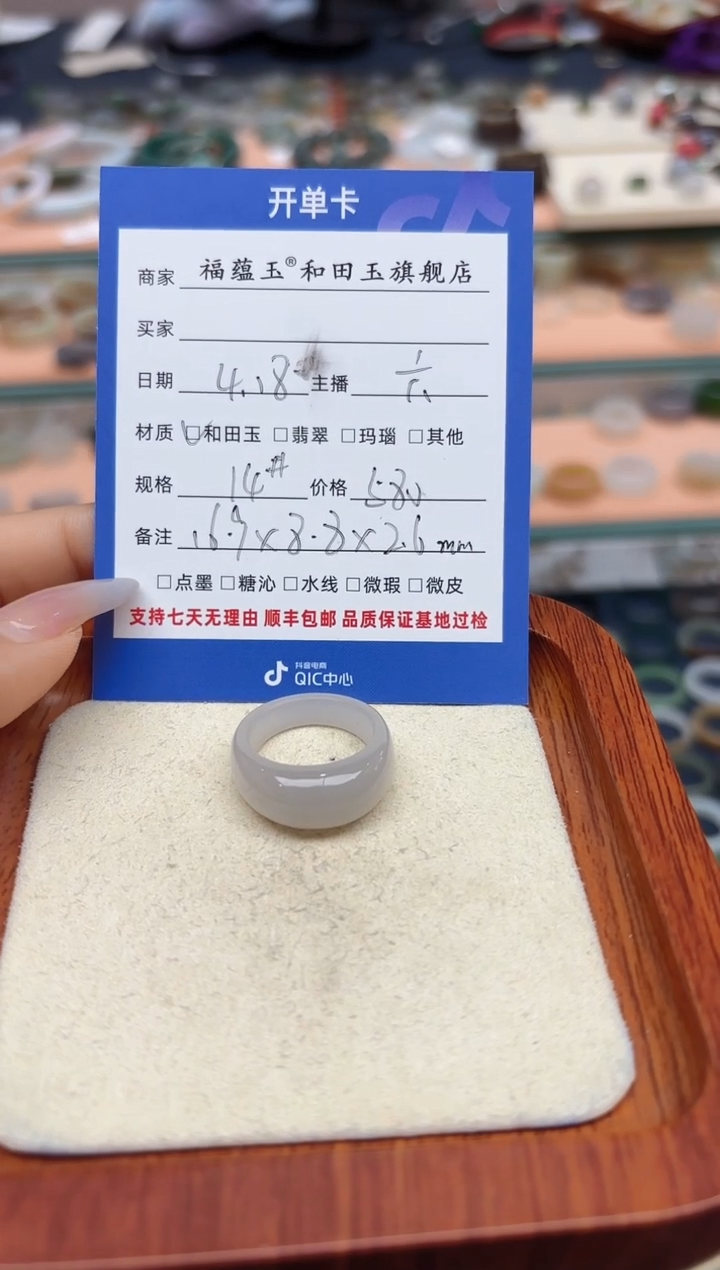 开单卡
商家 福蕴玉®和田玉旗舰店
买家
日期 4.18 主播
材质 □和田玉 □翡翠 □玛瑙 □其他
规格 14# 价格 580
备注 16.9×8.8×2.6mm
□点墨 □糖沁 □水线 □微瑕 □微皮
支持七天无理由 顺丰包邮 品质保证基地过检
抖音电商
QIC中心